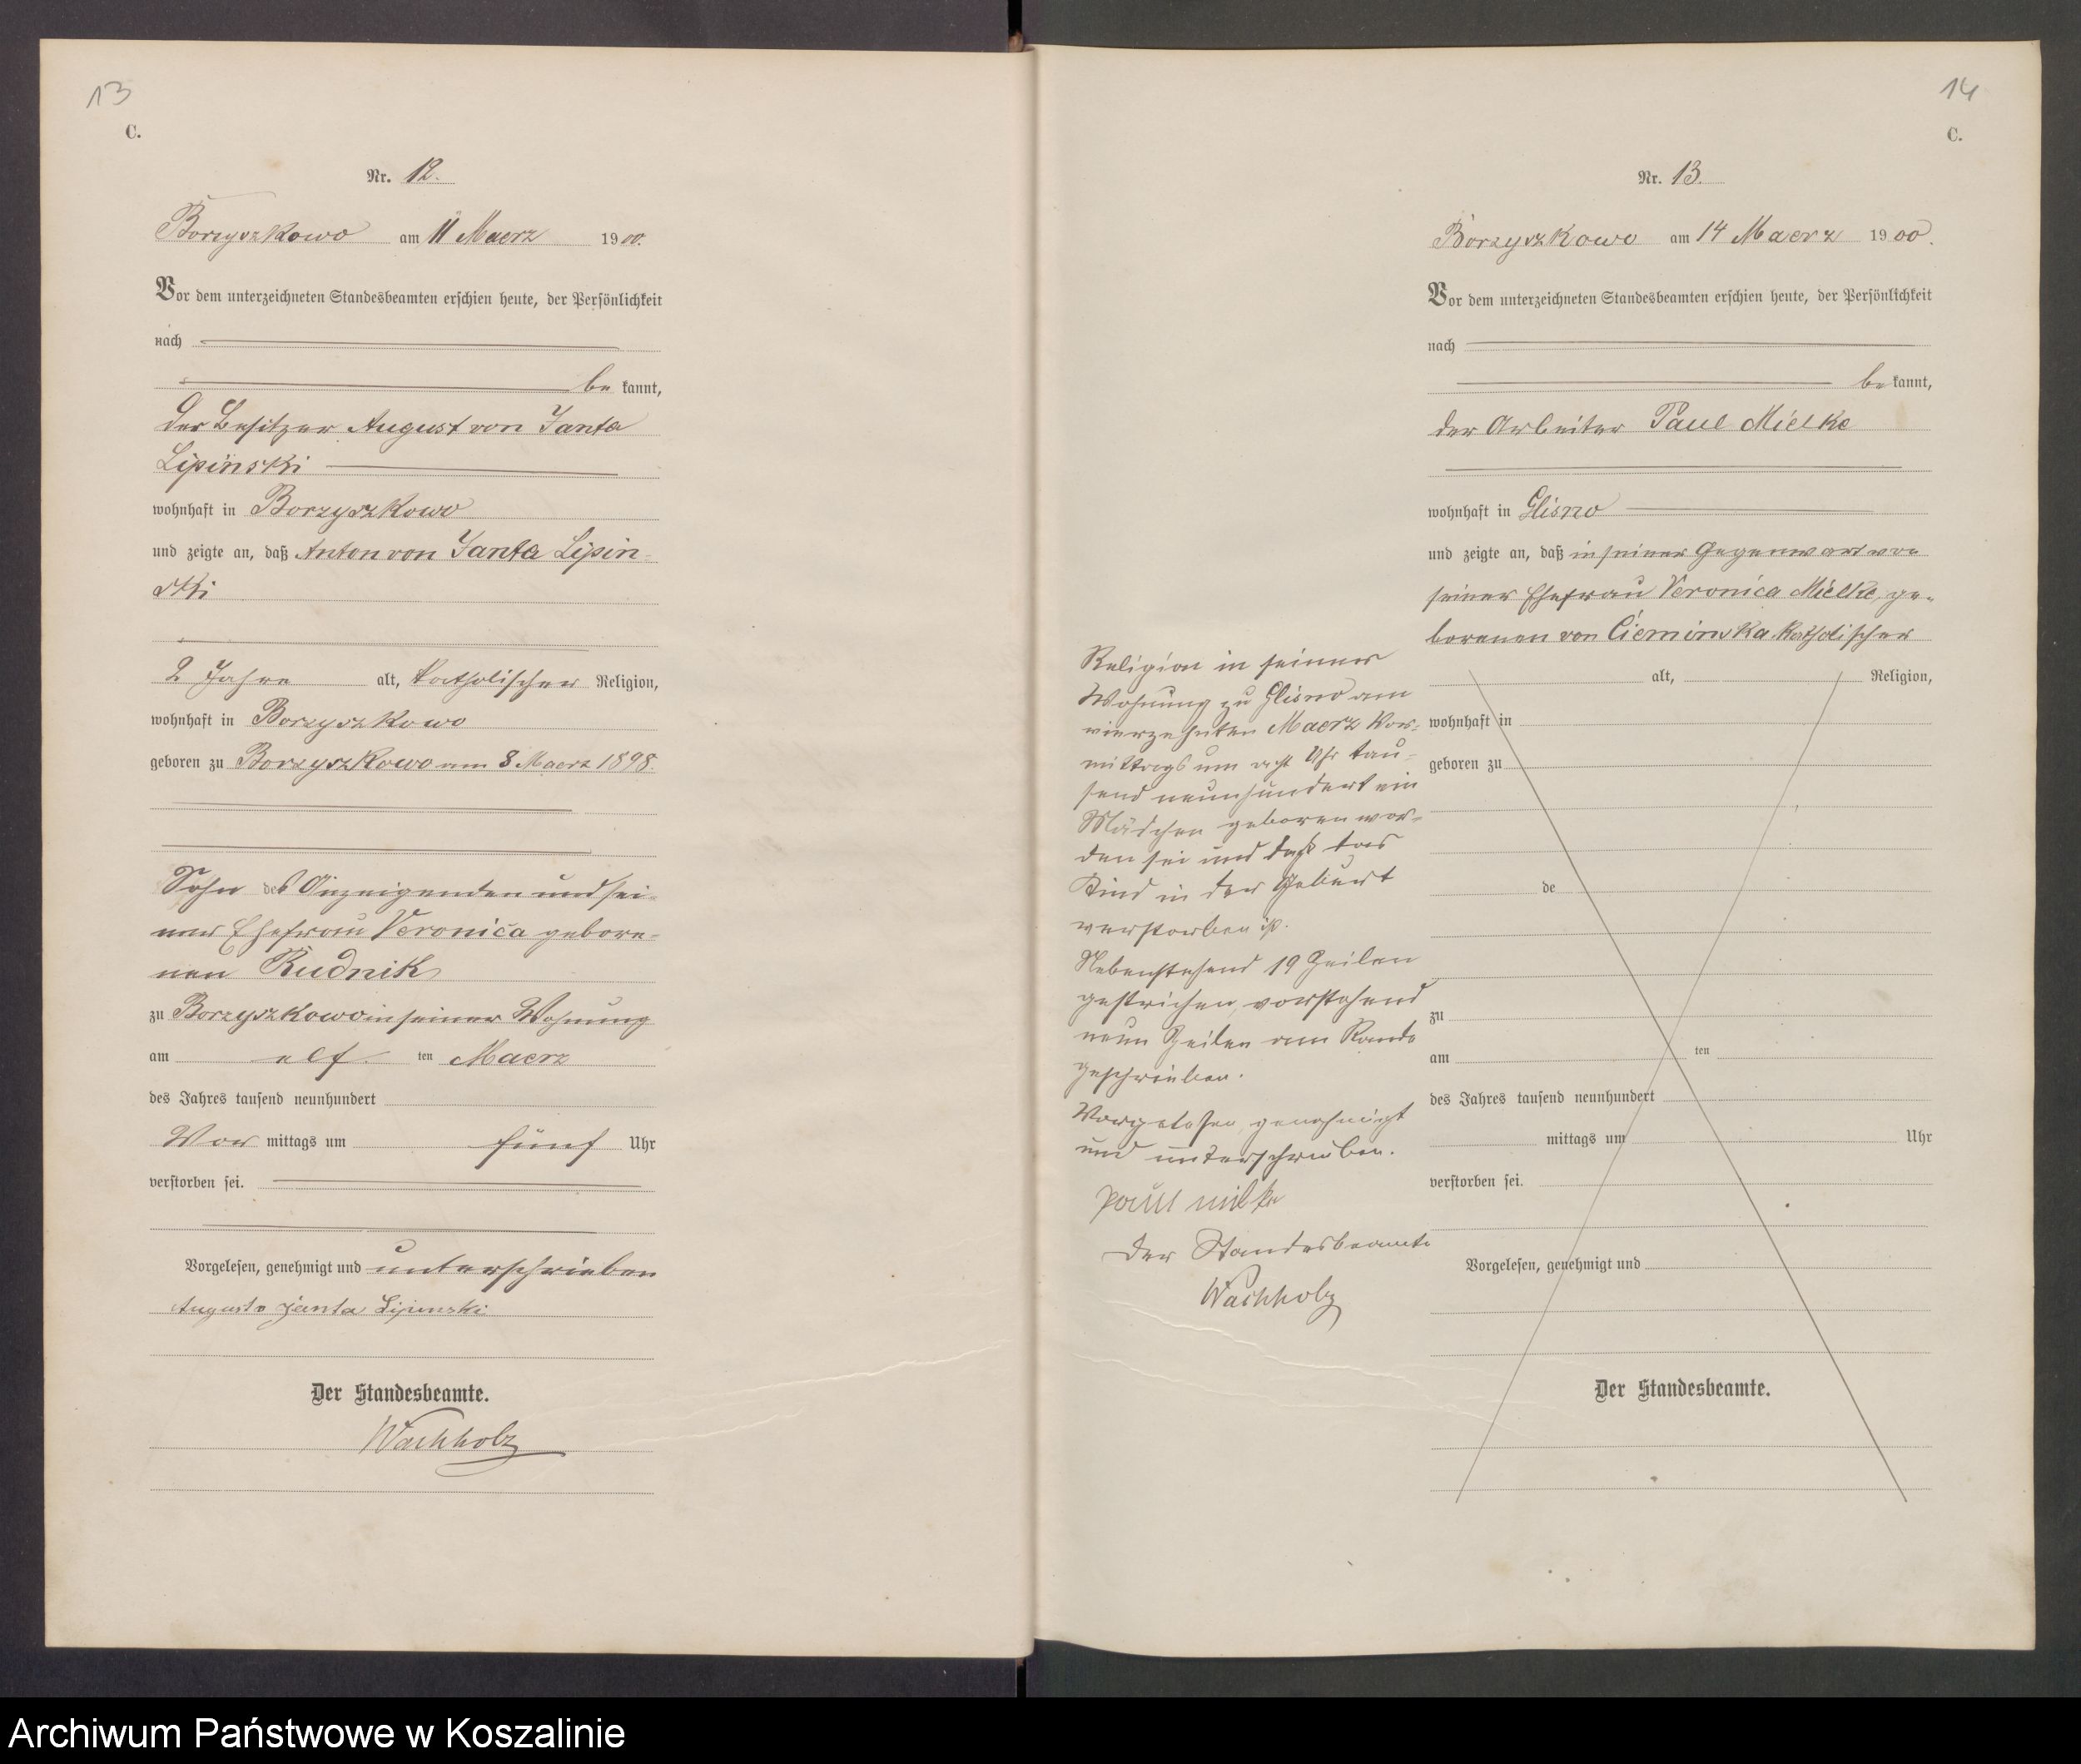 13
C.
Nr. 12.
Borzyszkowo am 11 Maerz 1900.
Vor dem unterzeichneten Standesbeamten erschien heute, der Persönlichkeit
nach
be kannt,
der Besitzer August von Janta
Lipinski
wohnhaft in Borzyszkowo
und zeigte an, daß Anton von Janta Lipin-
ski
2 Jahre alt, katholischer Religion,
wohnhaft in Borzyszkowo
geboren zu Borzyszkowo am 8 Maerz 1898.
Sohn des Anzeigenden und sei-
ner Ehefrau Veronica gebore-
nen Rudnik
zu Borzyszkowo in seiner Wohnung
am elf ten Maerz
des Jahres tausend neunhundert
Vor mittags um fünf Uhr
verstorben sei.
Vorgelesen, genehmigt und unterschrieben
August v Janta Lipinski
Der Standesbeamte.
Wachholz
14
C.
Nr. 13.
Borzyszkowo am 14 Maerz 1900.
Vor dem unterzeichneten Standesbeamten erschien heute, der Persönlichkeit
nach
be kannt,
der Arbeiter Paul Mielke
wohnhaft in Glisno
und zeigte an, daß in seiner Gegenwart von
seiner Ehefrau Veronica Mielke, ge-
borenen von Cieminska katholischer
Religion in seiner
Wohnung zu Glisno am
vierzehnten Maerz Vor-
mittags um acht Uhr tau-
send neunhundert ein
Mädchen geboren wor-
den sei und daß das
Kind in der Geburt
verstorben ist.
Nebenstehend 19 Zeilen
gestrichen, vorstehend
neun Zeilen am Rande
geschrieben.
Vorgelesen, genehmigt
und unterschrieben.
Paul Milke
Der Standesbeamte
Wachholz
alt, Religion,
wohnhaft in
geboren zu
de
zu
am ten
des Jahres tausend neunhundert
mittags um Uhr
verstorben sei.
Vorgelesen, genehmigt und
Der Standesbeamte.
Archiwum Państwowe w Koszalinie